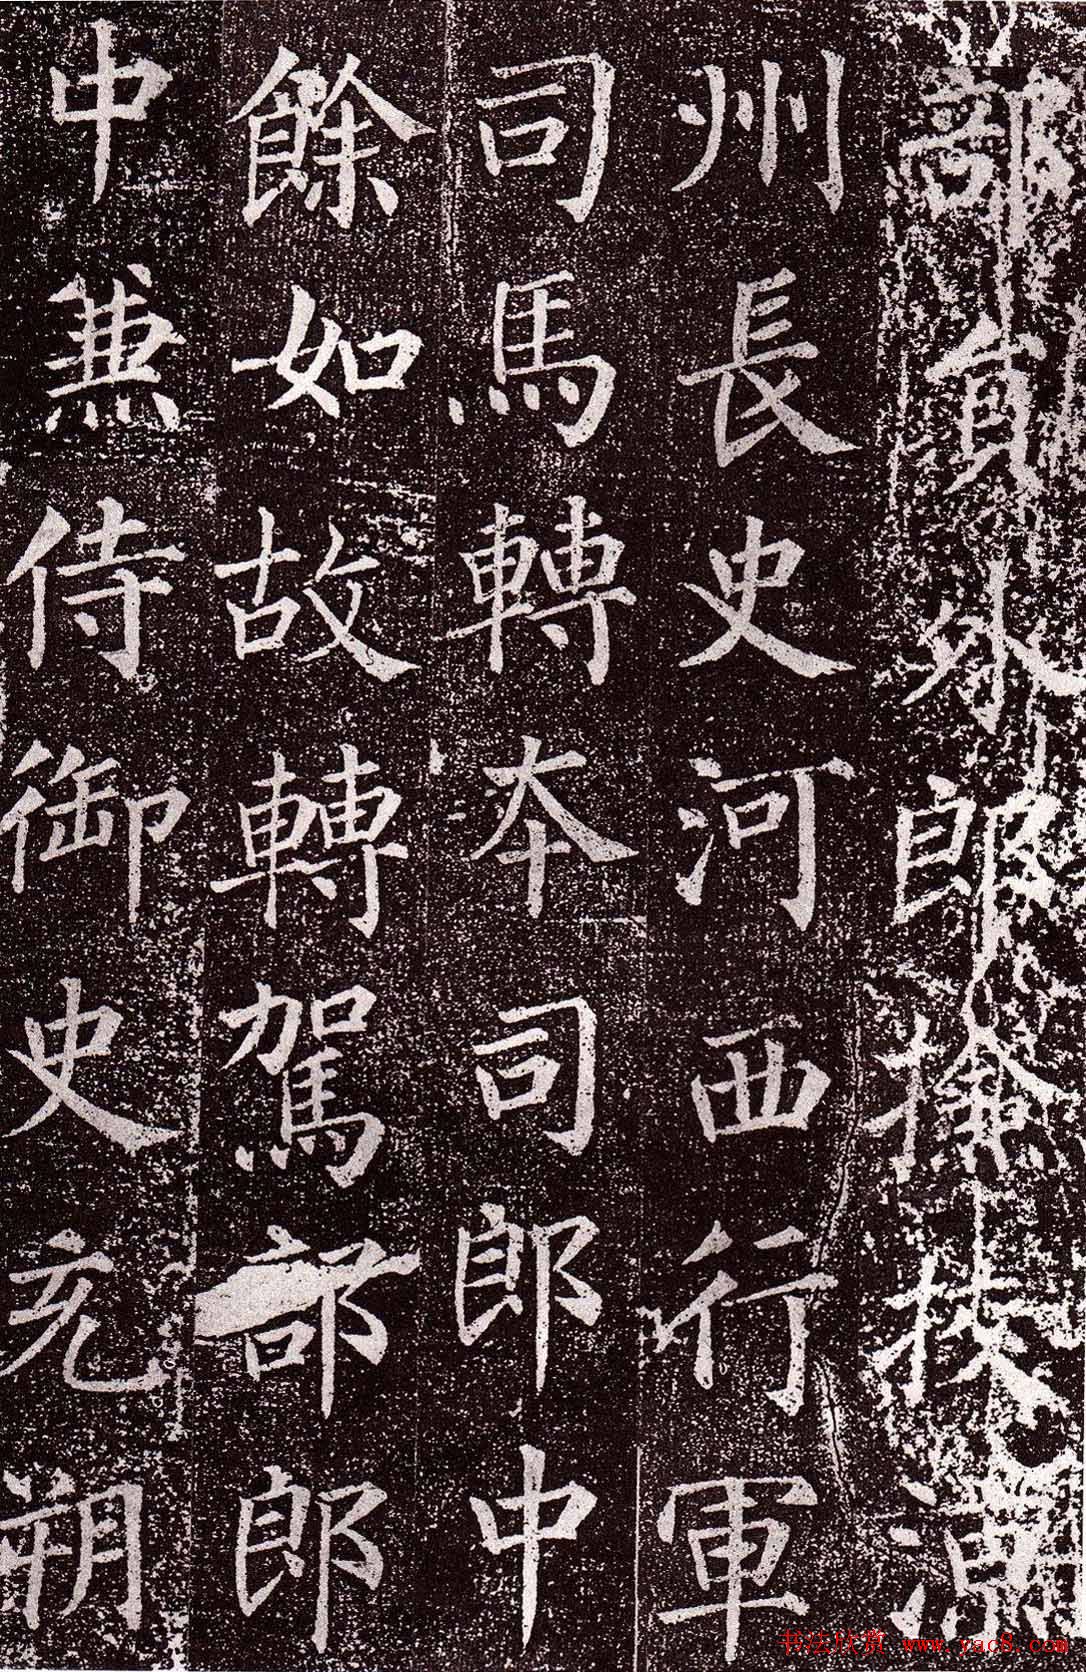 部員外郎撿挍涼
州長史河西行軍
司馬轉本司郎中
餘如故轉駕部郎
中兼侍御史充朔
书法欣赏 www.yac8.com